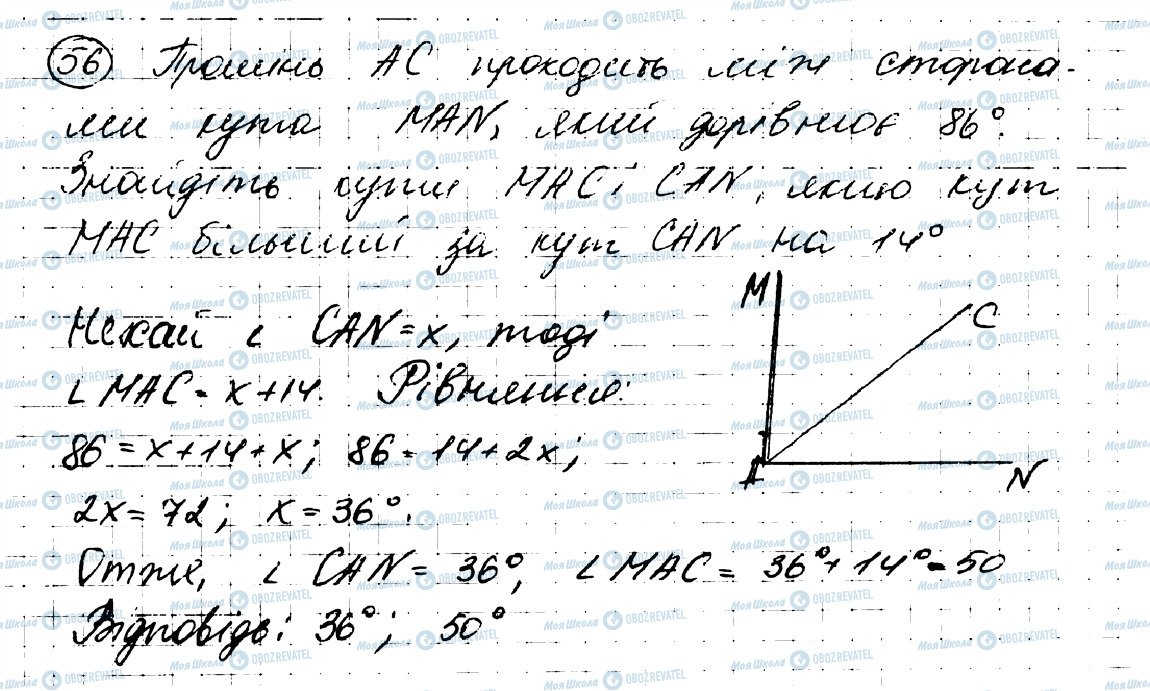 56 Промінь AC проходить між сторона-
ми кута MAN, який дорівнює 86°.
Знайдіть кути MAC і CAN, якщо кут
MAC більший за кут CAN на 14°
M
C
Нехай ∠ CAN = x, тоді
∠ MAC = x + 14. Рівняння:
86 = x + 14 + x; 86 = 14 + 2x;
A
N
2x = 72; x = 36°.
Отже, ∠ CAN = 36°, ∠ MAC = 36° + 14° = 50
Відповідь: 36°; 50°